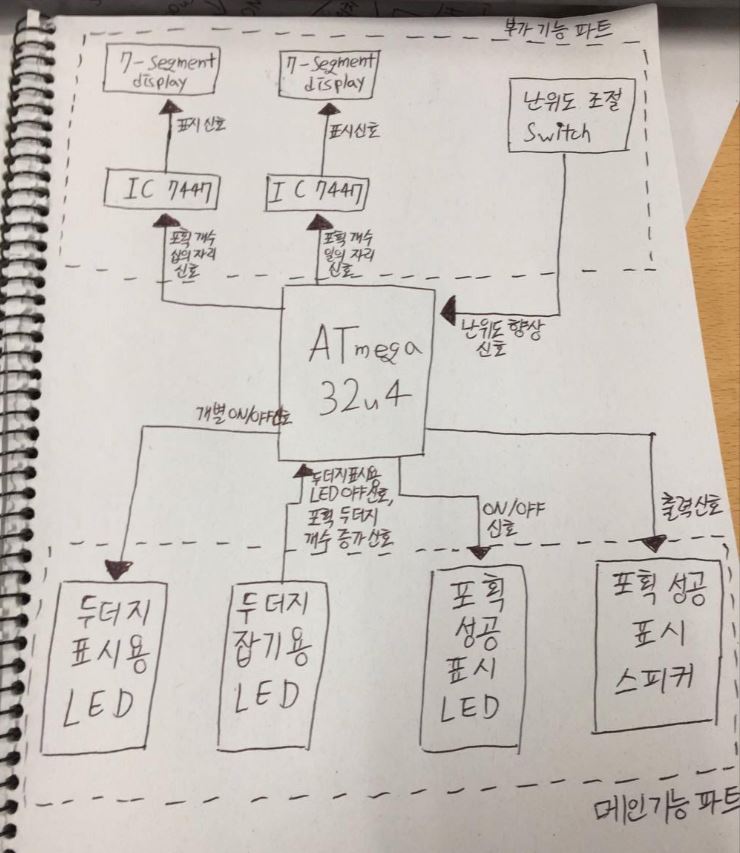 부가 기능 파트
7-Segment
display
7-Segment
display
난위도 조절
Switch
표시 신호
표시신호
IC 7447
IC 7447
포획 개수
십의 자리
신호
포획 개수
일의 자리
신호
ATmega
32u4
난위도 향상
신호
개별 ON/OFF신호
두더지표시용
LED OFF신호,
포획 두더지
개수 증가신호
ON/OFF
신호
출력신호
두더지
표시용
LED
두더지
잡기용
LED
포획
성공
표시
LED
포획 성공
표시
스피커
메인기능 파트